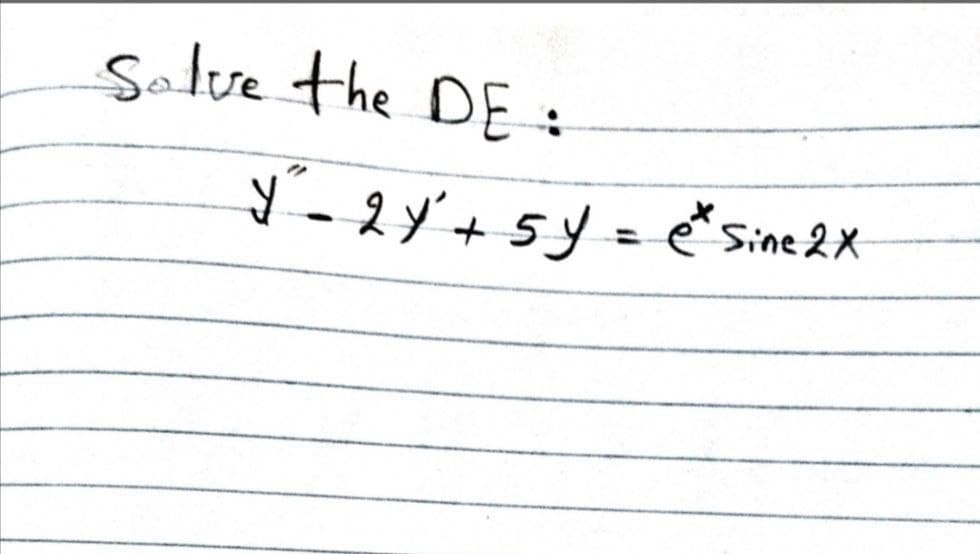 Solve the DE :
y″ - 2y′ + 5y = eˣ sine 2x